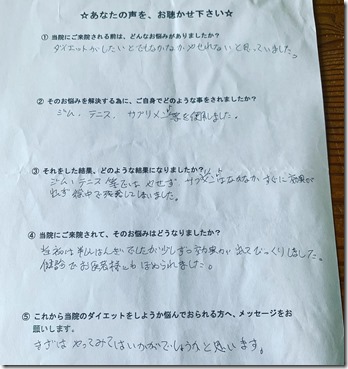 ☆あなたの声を、お聴かせ下さい☆
① 当院にご来院される前は、どんなお悩みがありましたか？
ダイエットがしたいとでもなかなかやせれないと思っていました。
② そのお悩みを解決する為に、ご自身でどのような事をされましたか？
ジム、テニス、サプリメント等を使用しました。
③ それをした結果、どのような結果になりましたか？
ジム・テニス等ではやせず サプリメントはなかなかすぐに効果が
出ず途中で挫折してしまいました。
④ 当院にご来院されて、そのお悩みはどうなりましたか？
最初は半しんはんぎでしたが少しずつ効果が出てびっくりしました。
健診でお医者様にもほめられました。
⑤ これから当院のダイエットをしようか悩んでおられる方へ、メッセージをお
願いします。
まずはやってみてはいかがでしょうかと思います。